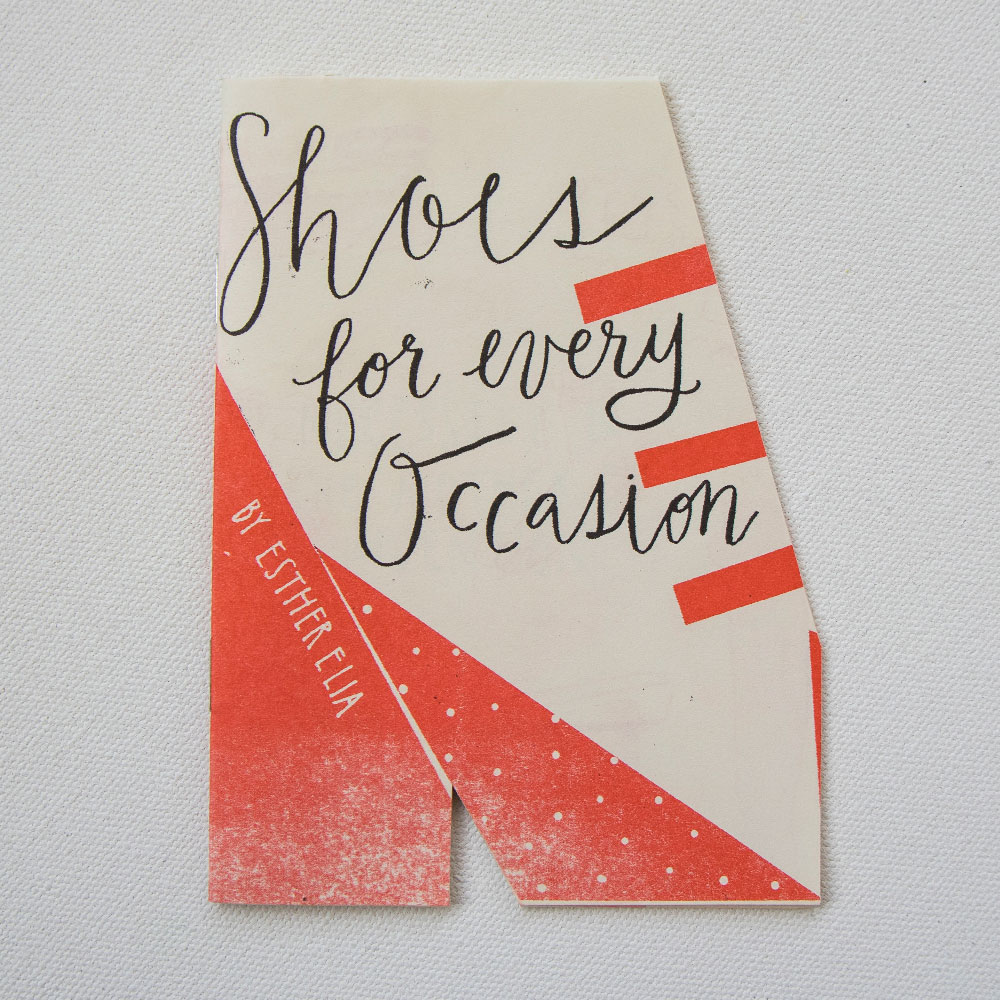 Shoes
for every
Occasion
BY ESTHER ELIA